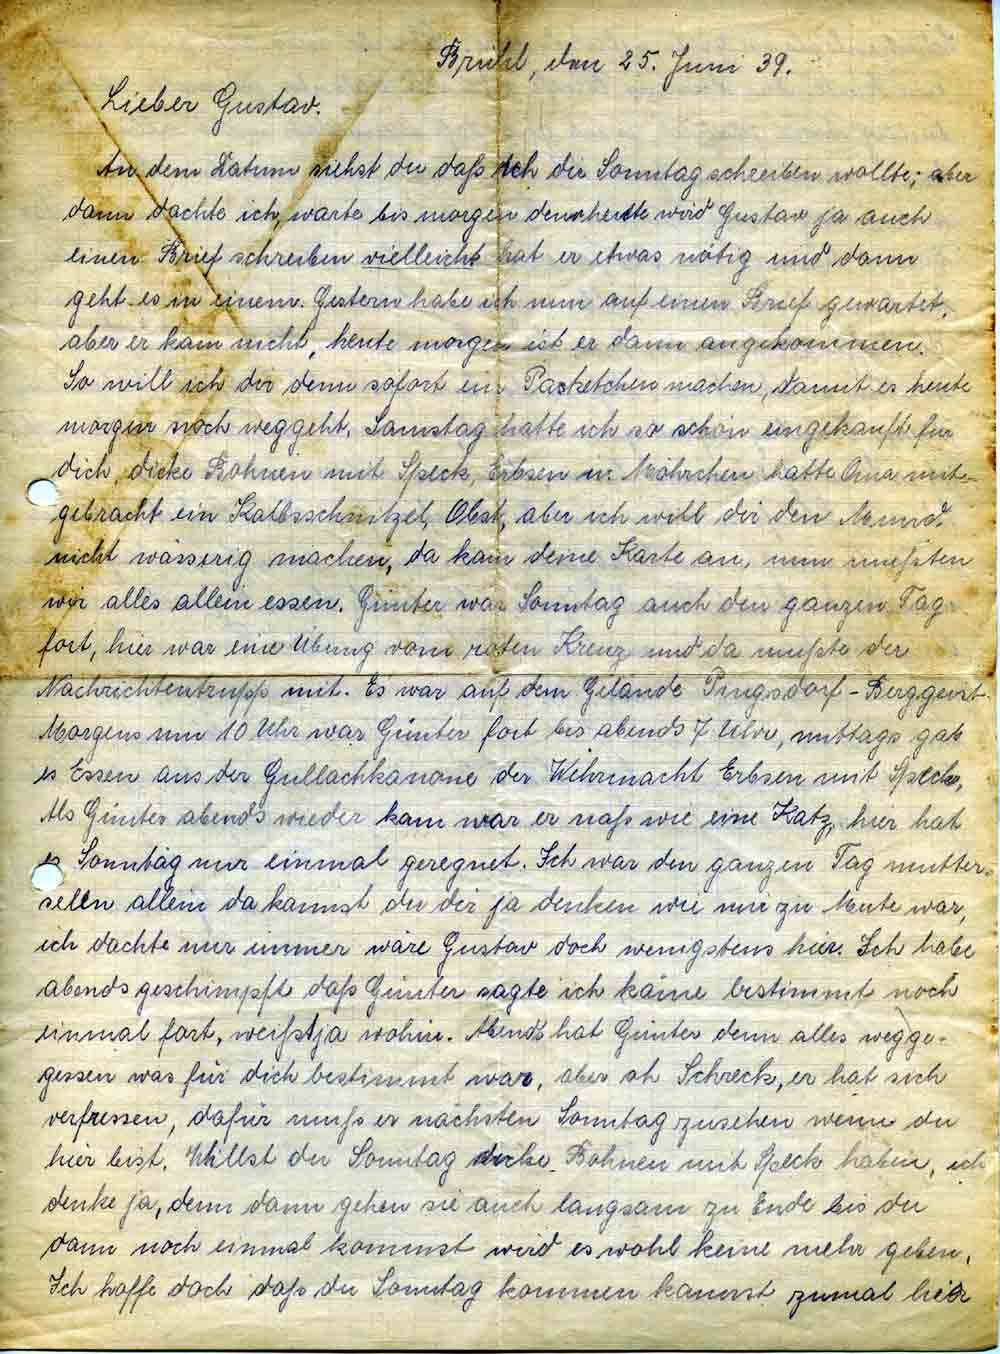 Brühl, den 25. Juni 39.
Lieber Gustav.
An dem Datum siehst du daß ich dir Sonntag schreiben wollte; aber
dann dachte ich, warte bis morgen denn heute wird Gustav ja auch
einen Brief schreiben vielleicht hat er etwas nötig und dann
geht es in einem. Gestern habe ich nun auf einen Brief gewartet,
aber er kam nicht, heute morgen ist er dann angekommen.
So will ich dir denn sofort ein Packetchen machen, damit es heute
morgen noch weggeht. Samstag hatte ich so schön eingekauft für
dich, dicke Bohnen mit Speck, Erbsen u. Möhrchen hatte Oma mit-
gebracht ein Kalbsschnitzel, Obst, aber ich will dir den Mund
nicht wässerig machen, da kam deine Karte an, nun mußten
wir alles allein essen. Günter war Sonntag auch den ganzen Tag
fort, hier war eine Übung vom roten Kreuz und da mußte der
Nachrichtentrupp mit. Es war auf dem Gelände Pingsdorf - Berggeist.
Morgens um 10 Uhr war Günter fort bis abends 7 Uhr, mittags gab
es Essen aus der Gullachkanone der Wehrmacht Erbsen mit Speck,
Als Günter abends wieder kam war er naß wie eine Katz, hier hat
es Sonntag nur einmal geregnet. Ich war den ganzen Tag mutter-
seelen allein da kannst du dir ja denken wie mir zu Mute war,
ich dachte nur immer wäre Gustav doch wenigstens hier. Ich habe
abends geschimpft daß Günter sagte ich käme bestimmt noch
einmal fort, weißt ja wohin. Abends hat Günter denn alles wegge-
gessen was für dich bestimmt war, aber oh Schreck, er hat sich
verfressen, dafür muß er nächsten Sonntag zusehen wenn du
hier bist. Willst du Sonntag dicke Bohnen mit Speck haben, ich
denke ja, denn dann gehen sie auch langsam zu Ende bis du
dann noch einmal kommst wird es wohl keine mehr geben.
Ich hoffe doch daß du Sonntag kommen kannst zumal hier